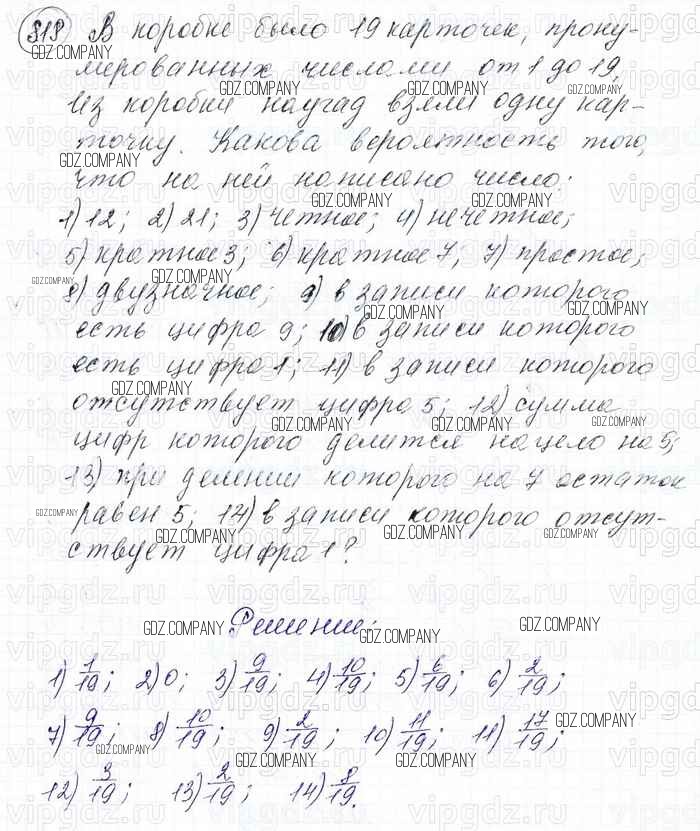 818) В коробке было 19 карточек, прону-
мерованных числами от 1 до 19,
Из коробки наугад взяли одну кар-
точку. Какова вероятность того,
что на ней написано число:
1) 12; 2) 21; 3) четное; 4) нечетное;
5) кратное 3; 6) кратное 7; 7) простое;
8) двузначное; 9) в записи которого
есть цифра 9; 10) в записи которого
есть цифра 1; 11) в записи которого
отсутствует цифра 5; 12) сумма
цифр которого делится нацело на 5;
13) при делении которого на 7 остаток
равен 5; 14) в записи которого отсут-
ствует цифра 1?
Решение:
1) 1/19; 2) 0; 3) 9/19; 4) 10/19; 5) 6/19; 6) 2/19;
7) 9/19; 8) 10/19; 9) 2/19; 10) 11/19; 11) 17/19;
12) 3/19; 13) 2/19; 14) 8/19.
GDZ.COMPANY
vipgdz.ru